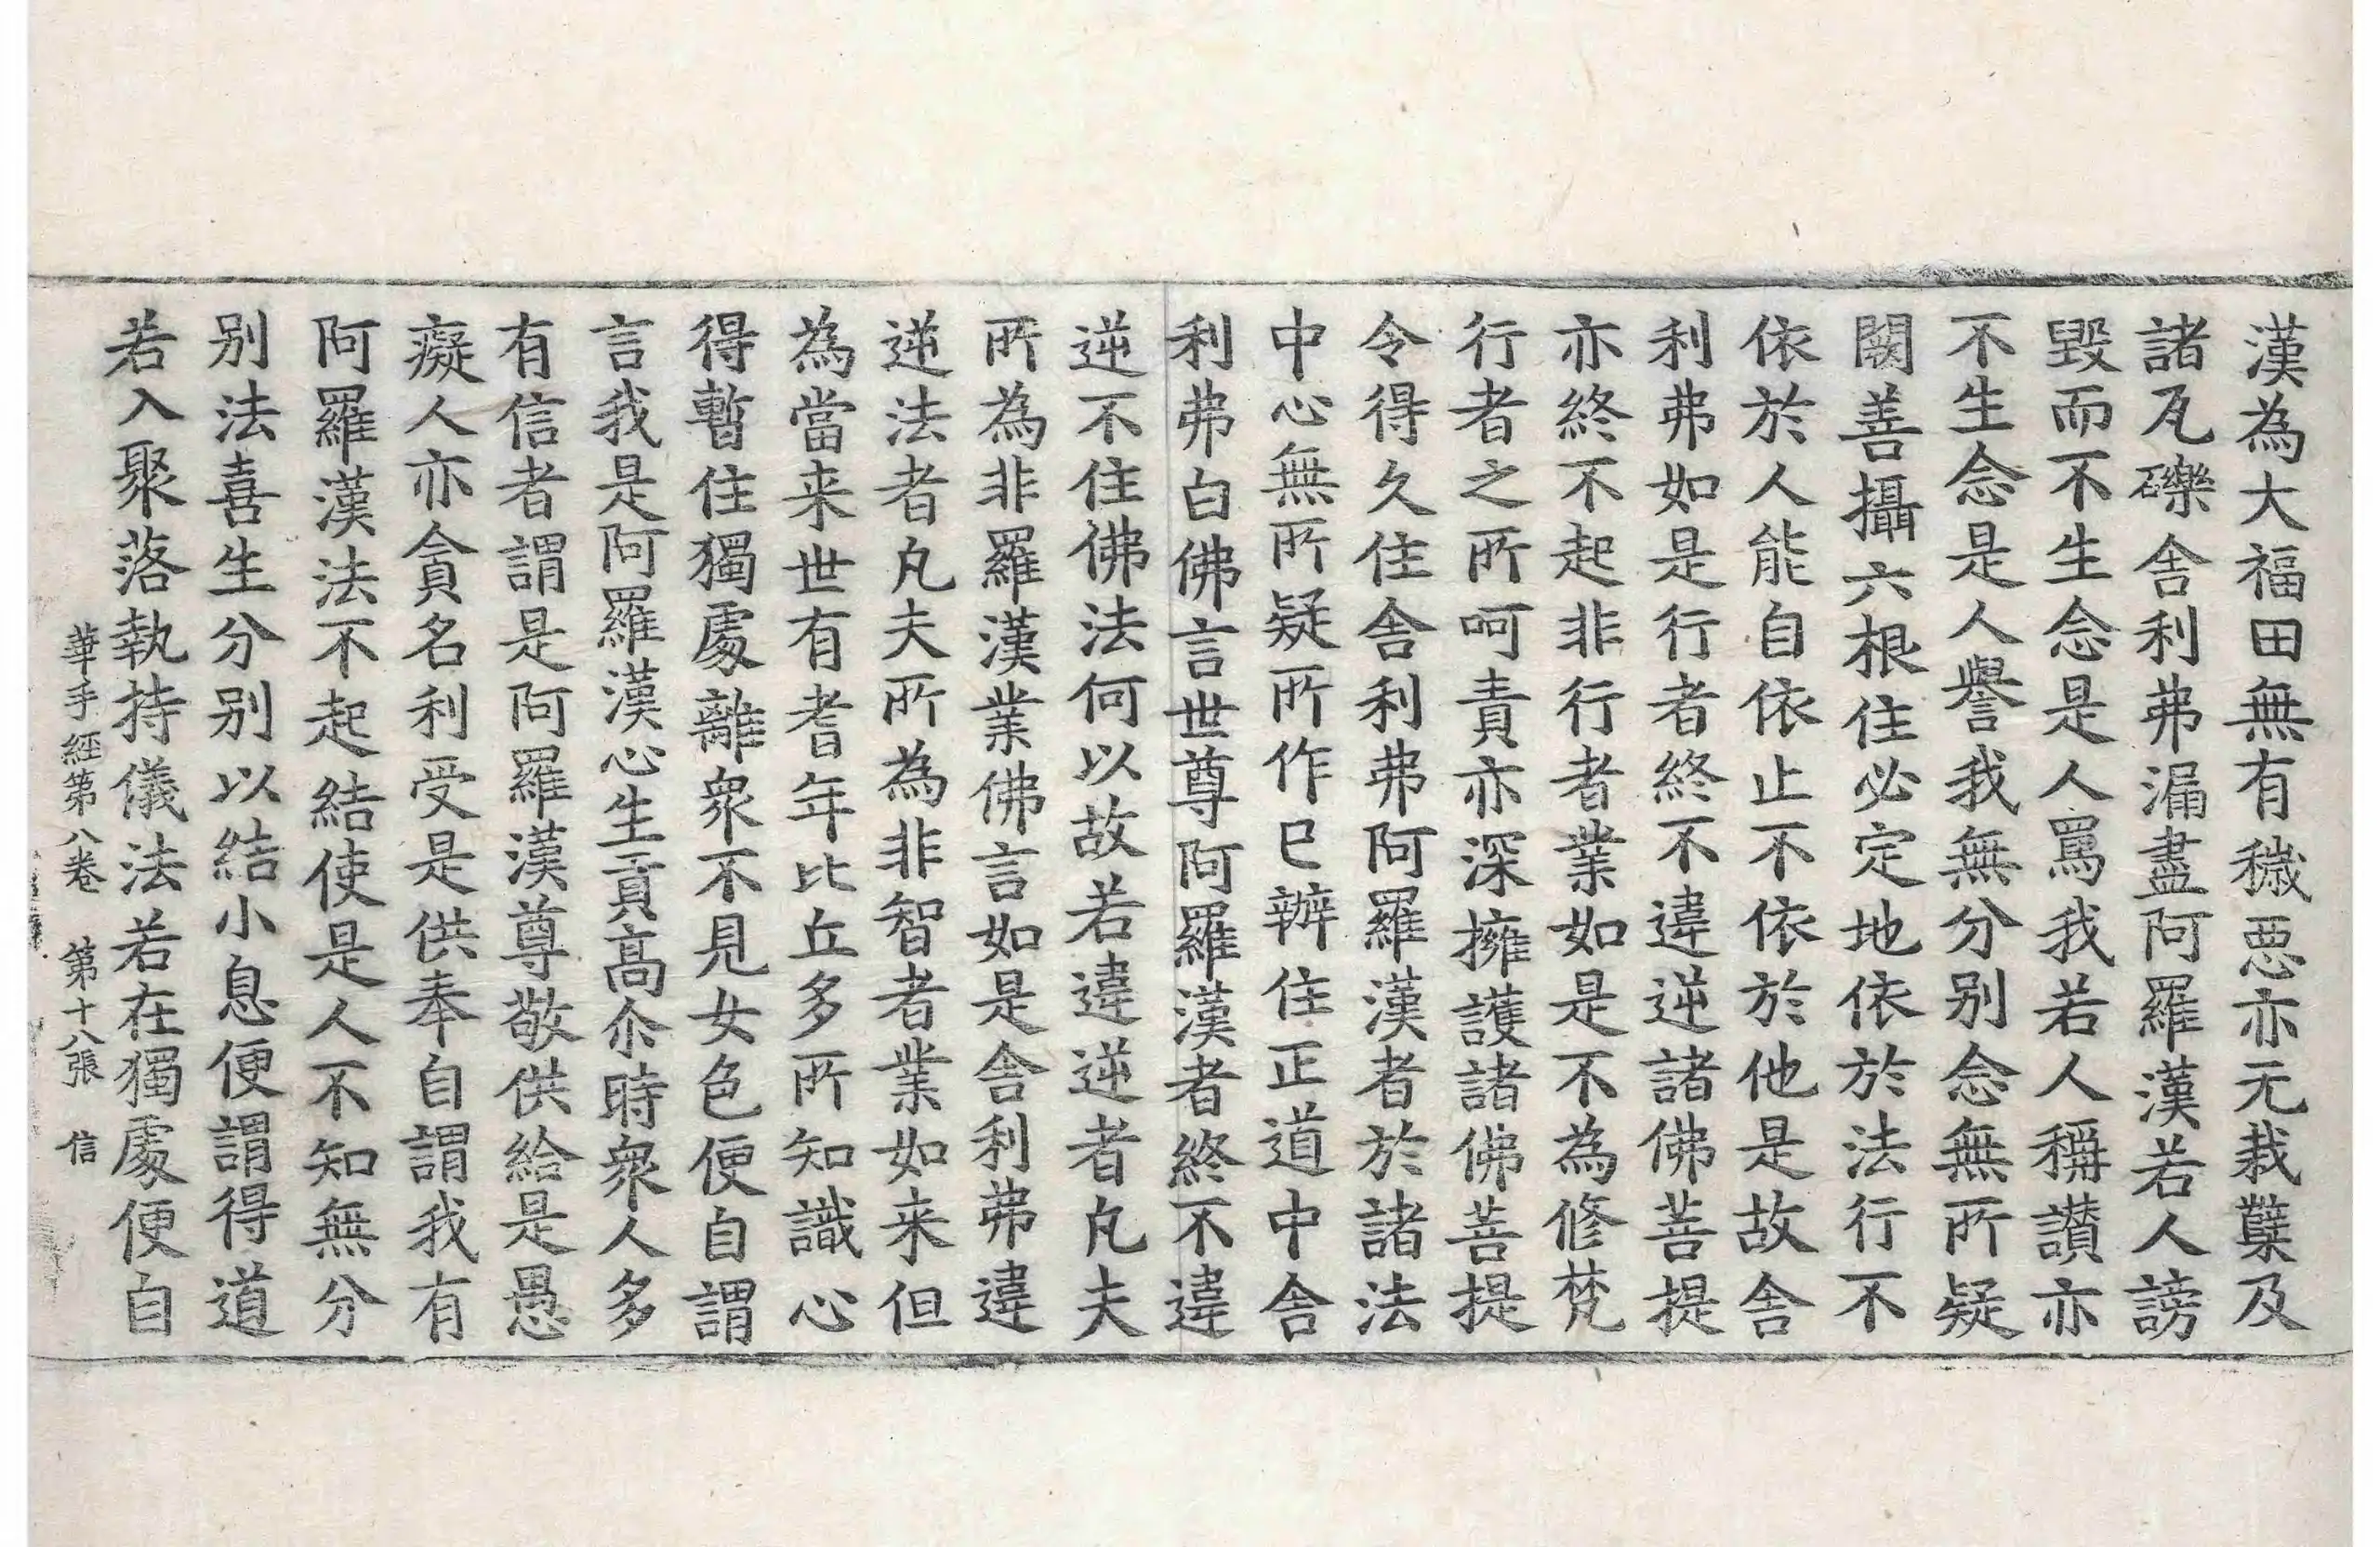 漢為大福田無有穢惡亦无栽蘖及
諸瓦礫舍利弗漏盡阿羅漢若人謗
毀而不生念是人罵我若人稱讃亦
不生念是人譽我無分别念無所疑
闕善攝六根住必定地依於法行不
依於人能自依止不依於他是故舍
利弗如是行者終不違逆諸佛菩提
亦終不起非行者業如是不為修梵
行者之所呵責亦深擁護諸佛菩提
令得久住舍利弗阿羅漢者於諸法
中心無所疑所作已辦住正道中舍
利弗白佛言世尊阿羅漢者終不違
逆不住佛法何以故若違逆者凡夫
所為非羅漢業佛言如是舍利弗違
逆法者凡夫所為非智者業如来但
為當来世有耆年比丘多所知識心
得暫住獨處離衆不見女色便自謂
言我是阿羅漢心生貢高尒時衆人多
有信者謂是阿羅漢尊敬供給是愚
癡人亦貪名利受是供奉自謂我有
阿羅漢法不起結使是人不知無分
别法喜生分别以結小息便謂得道
若入聚落執持儀法若在獨處便自
華手經第八卷 第十八張 信